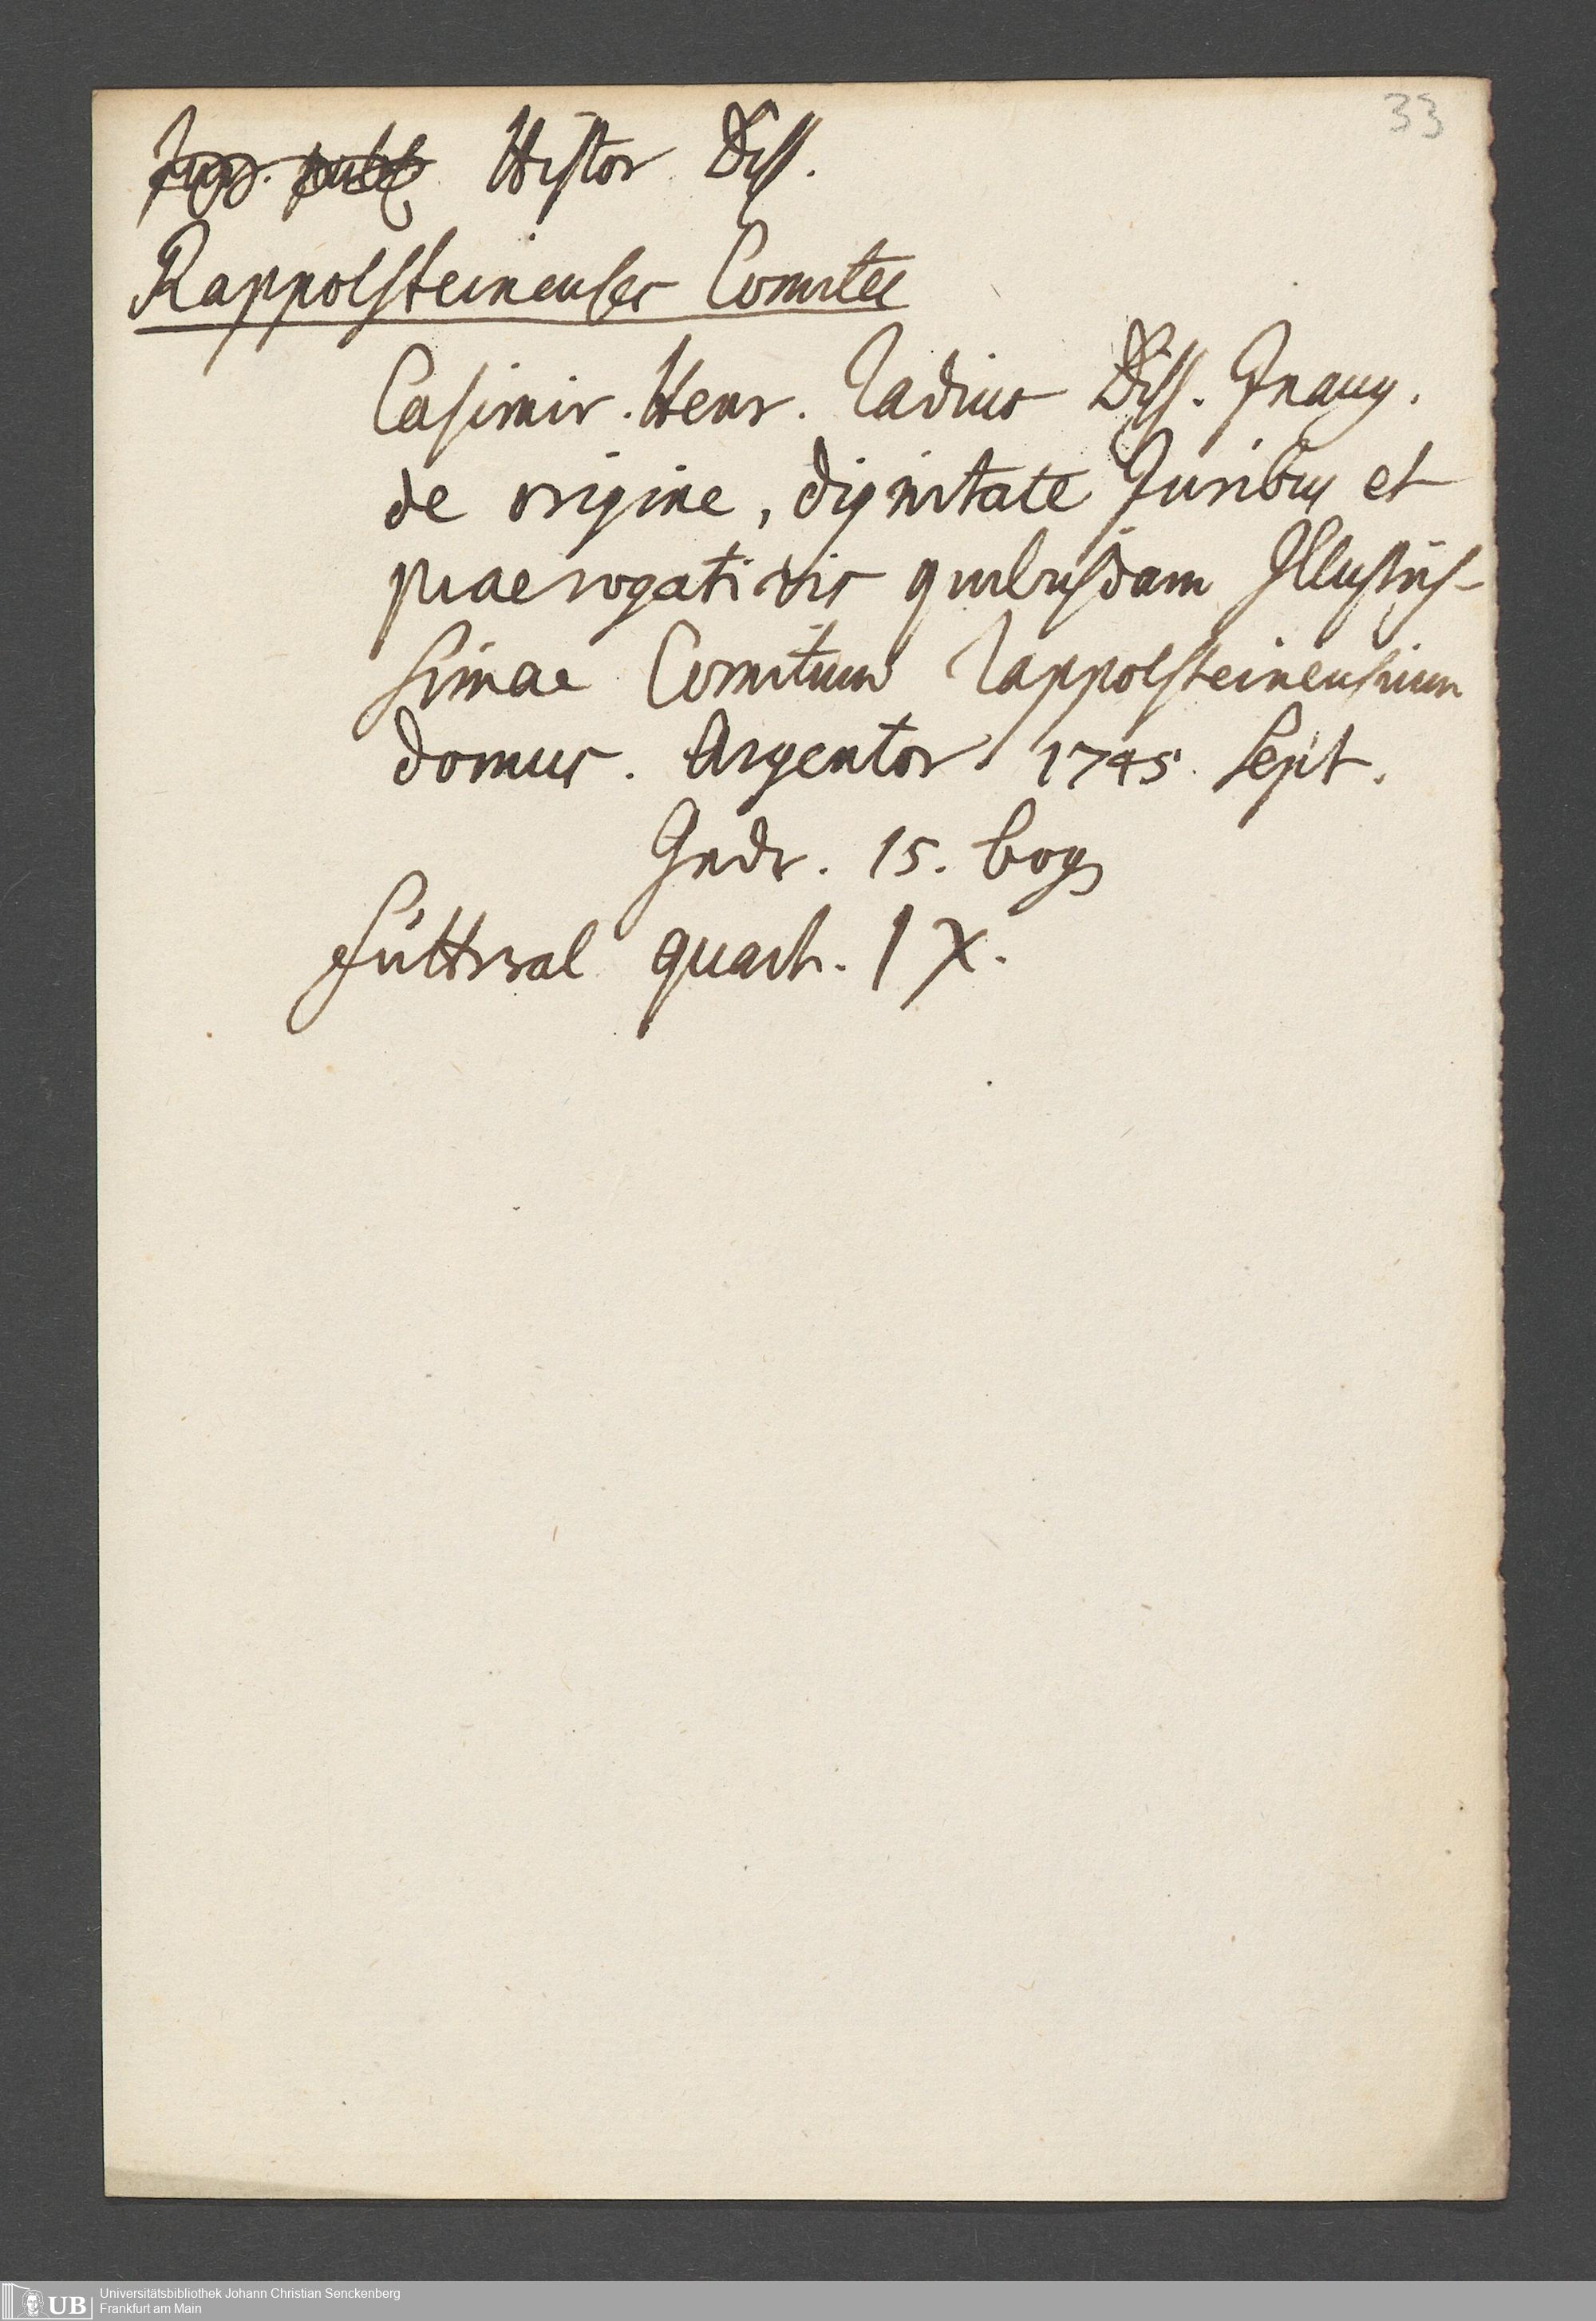 33
Jur. publ. Histor Diss.
Rappolsteinenses Comites
Casimir. Henr. Radius Diss. Inaug.
de origine, dignitate Juribus et
praerogativis quibusdam Illustris-
simae Comitum Rappolsteinensium
domus. Argentor 1745. Sept.
15. bog
quart. IX.
Universitätsbibliothek Johann Christian Senckenberg
Frankfurt am Main
UB